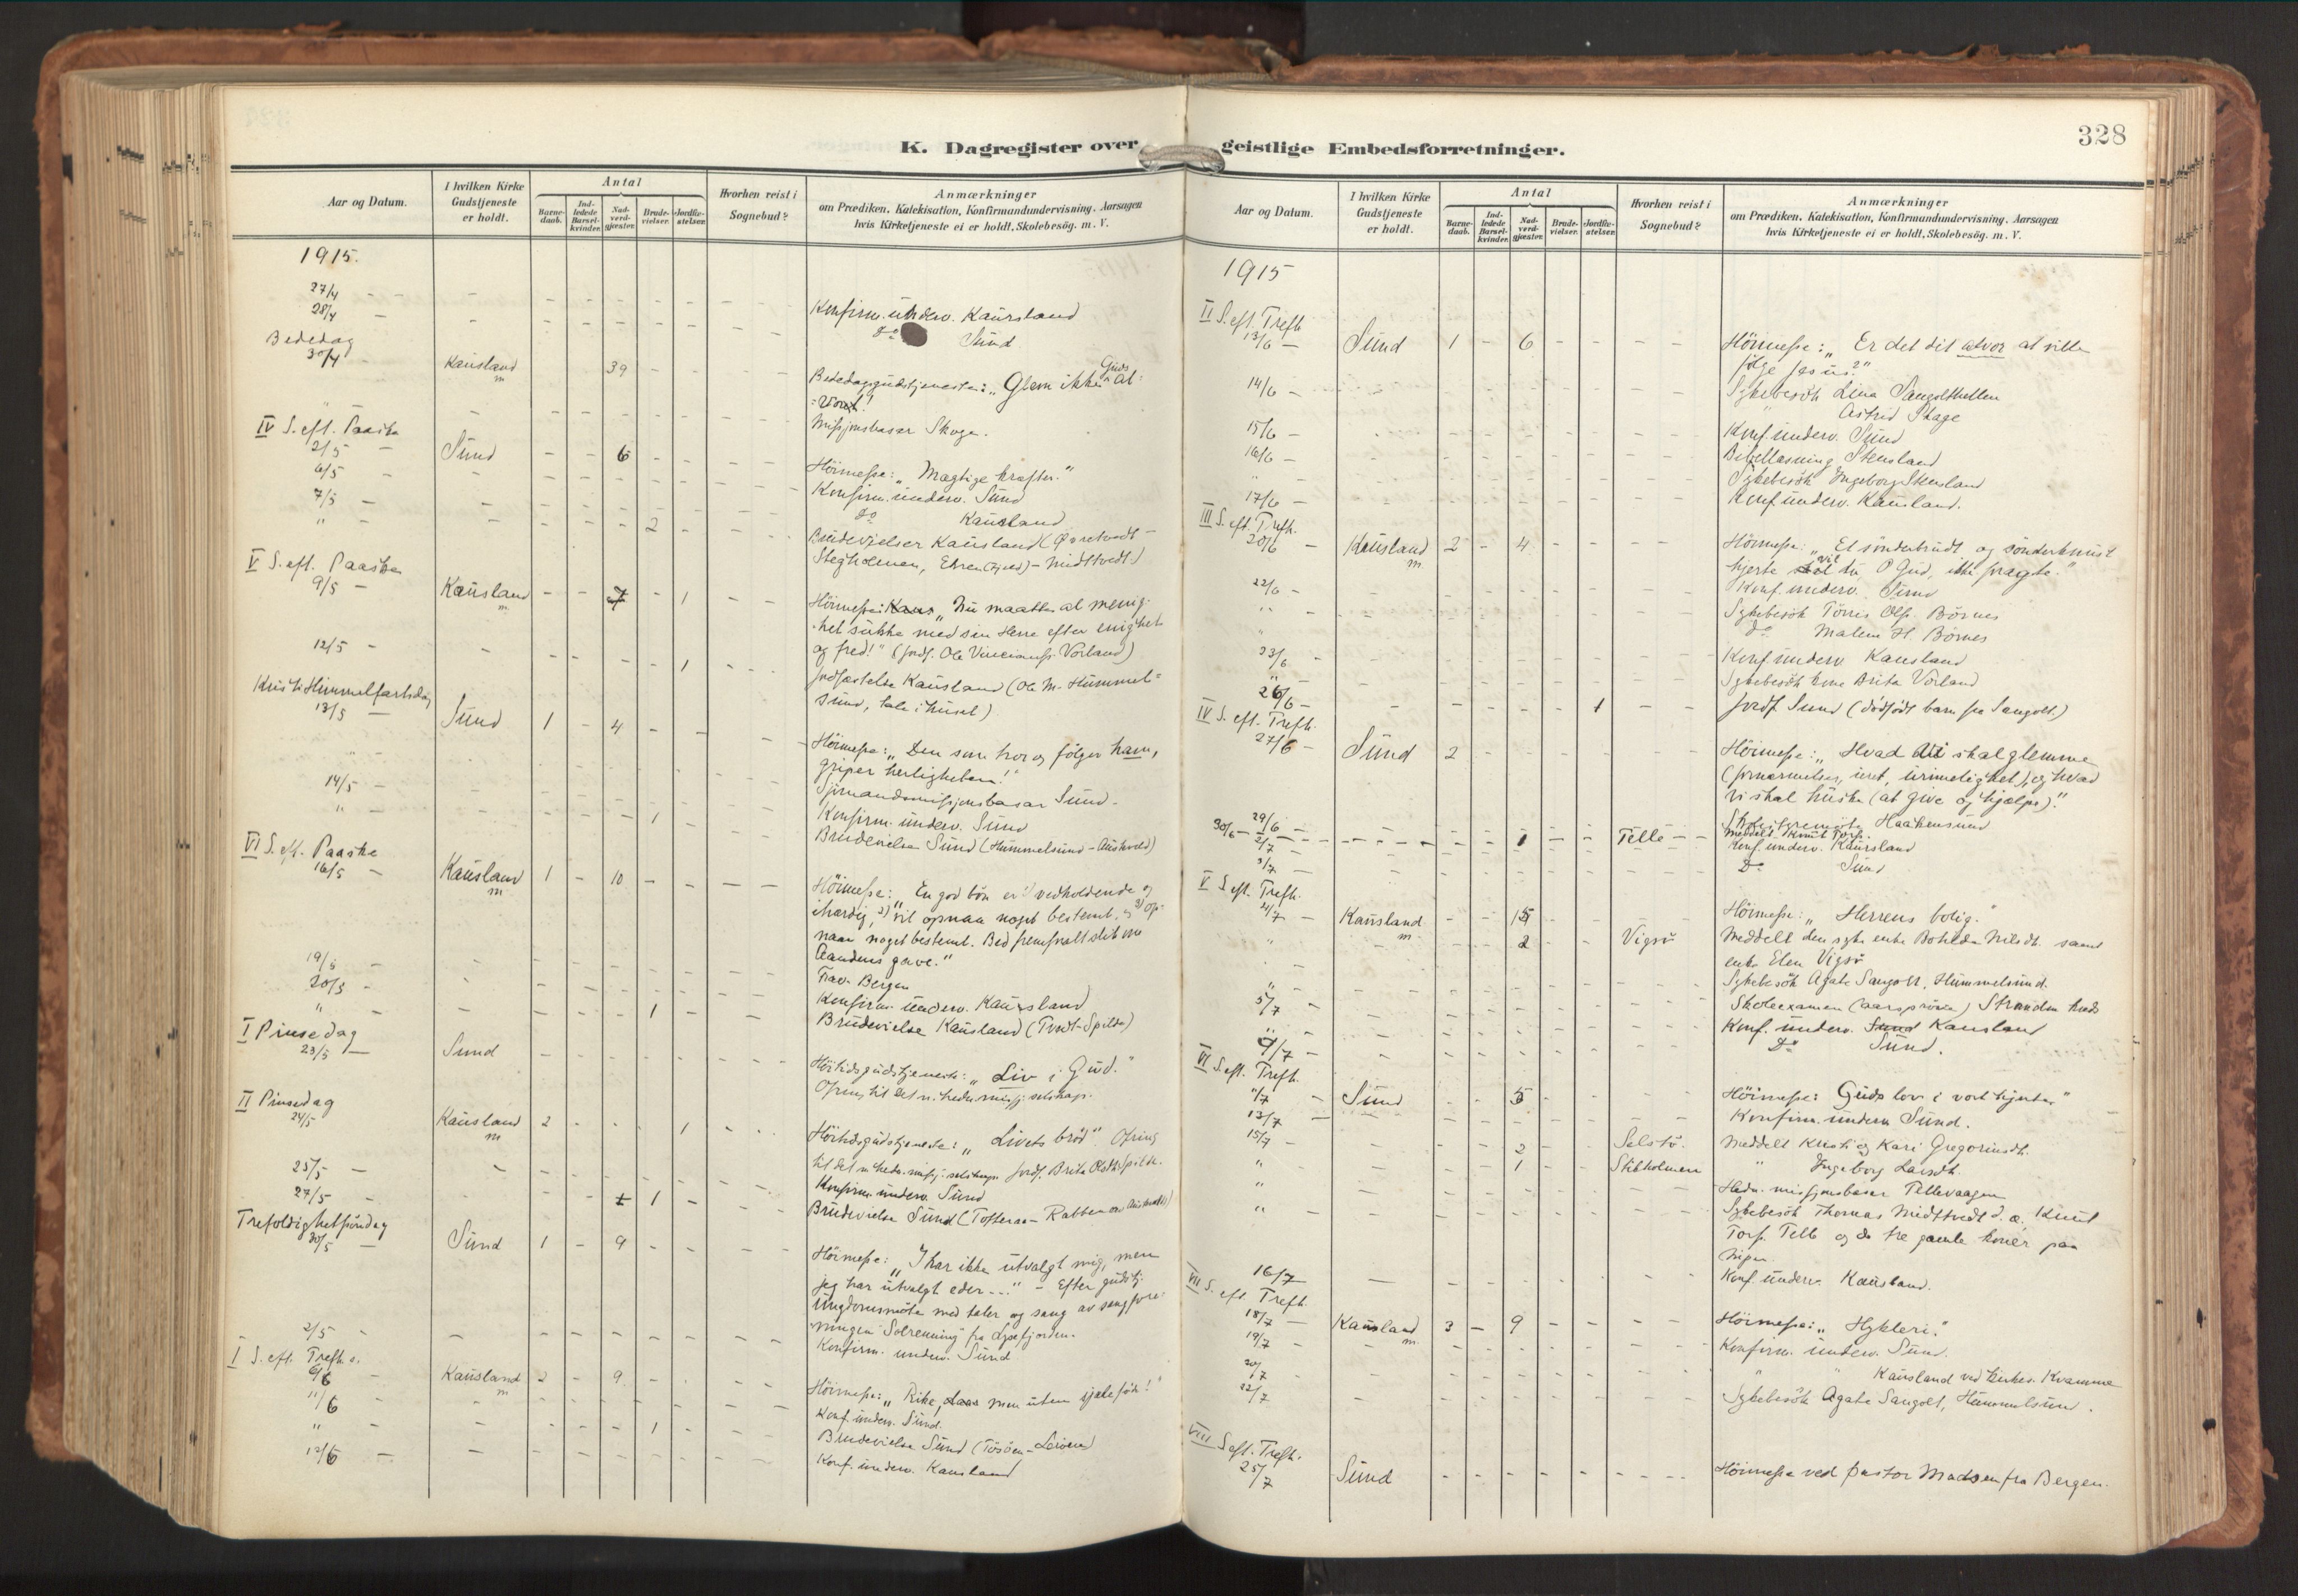 328
K. Dagregister over geistlige Embedsforretninger.
Aar og Datum.
I hvilken Kirke Gudstjeneste er holdt.
Antal
Barne-daab.
Ind-ledede Barsel-kvinder.
Nad-verd-gjæster.
Brude-vielser.
Jordfæ-stelser.
Hvorhen reist i Sognebud?
Anmærkninger
om Prædiken, Katekisation, Konfirmandundervisning, Aarsagen
hvis Kirketjeneste ei er holdt, Skolebesög. m. V.
1915.
27/4 - Konfirm. underv. Kausland
28/4 - do Sund
Bededag
30/4 - Kausland m 39 Bededagsgudstjeneste: „Glem ikke Guds al-
Missjonsbasar Skoge.
IV S. eft. Paaske
2/5 Sund - - 6 Höimesse: „Mægtige kræfter."
6/5 Konfirm. underv. Sund
7/5 - do Kausland
" 2 Brudevielser Kausland (
Stegholmen, - Midttvedt.)
V S. eft. Paaske
9/5 - Kausland m - - 7 - 1 Höimesse: „Nu maatte al menig-
het sukke med sin Herre efter enighet
og fred!" (jordf. Ole Vorland)
12/5 - 1 Jordfæstelse Kausland (Ole M. Hummel-
sund, tale i huset)
Kristi Himmelfartsdag
13/5 - Sund 1 - 4 - - Höimesse: „Den som tror og følger ham,
griper herligheten!"
" Sjømandsmissjonsbasar Sund.
14/5 - Konfirm. underv. Sund
" - 1 Brudevielse Sund (Hummelsund - Austvold)
VI S. eft. Paaske
16/5 - Kausland m 1 - 10 - - Höimesse: „En god bön er 1) vedholdende og
ihærdig, 2) vil opnaa noget bestemt, og 3) op-
naar noget bestemt. Bed
Aandens gave."
19/5 - Frav. Bergen
20/5 - Konfirm. underv. Kausland
" - 1 Brudevielse Kausland (Tveit-Spilde)
I Pinsedag
23/5 - Sund Höitidsgudstjeneste: „Liv i Gud."
Ofring til det n. hedn. missj. selskap.
II Pinsedag
24/5 Kausland m 2 1 Höitidsgudstjeneste: „Livets bröd". Ofring
til det n. hedn. missj. selskap. Jordf. Brita Olsdt. Spilde.
25/5 - Konfirm. underv. Sund
27/5 - 1 Brudevielse Sund (
Trefoldighetsöndag
30/5 - Sund 1 - 9 - - Höimesse: „I har ikke utvalgt mig, men
jeg har utvalgt eder ..." - Efter gudstj.
Ungdomsmöte med taler og sang av sangfore-
ningen Solrenning fra Lysefjorden.
2/5 - Konfirm. underv. Sund
I S. eft. Trefh.
6/6 - Kausland m 2 - 9 - Höimesse: „Rike, men uten
11/6 - Konf. underv. Sund.
" 1 Brudevielse Sund (
12/6 - Konf. underv. Kausland
1915
II S. eft. Trefh
13/6 - Sund 1 - 6 - - Höimesse: „Er det dit alvor at ville
følge Jesus?"
14/6 - Sykebesök Lina Sangolthellen
" Astrid Skage
15/6 - Konf. underv. Sund
16/6 - Bibellæsning Stensland
" Sykebesök Ingeborg Stensland
17/6 - Konf. underv. Kausland.
III S. eft. Trefh.
20/6 - Kausland m 2 - 4 - Höimesse: „Et sönderbrudt og sönderknust
hjerte vil du, O Gud, ikke foragte."
22/6 - Konf. underv. Sund
" - Sykebesök Törris Ols. Börnes
" do Malene H. Börnes
23/6 - Konf. underv. Kausland
" Sykebesök Brita Vorland
26/6 - 1 Jordf. Sund (dödfödt barn fra Sangolt.)
IV S. eft. Trefh.
27/6 - Sund 2 Höimesse: „Hvad vi skal glemme
(fornærmelser, uret, urimelighet), og hvad
vi skal huske (at give og hjælpe)."
29/6 - Haakensund
30/6 - 1 - Telle - Meddelt Knut Tors.
2/7 - Konf. underv. Kausland
3/7 - Do Sund
V S. eft. Trefh.
4/7 - Kausland m - - 15 - - Höimesse: „Herrens bolig."
" 2 Vigsö Meddelt den syke enke Bothilda Nilsdt. samt
enke Elen Vigsö
" Sykebesök Agate Sangolt, Hummelsund.
5/7 - Skoleexamen (aarspröve)
" Konf. underv. Kausland
9/7 - Do Sund.
VI S. eft. Trefh.
11/7 - Sund 5 Höimesse: Guds lov i vort hjerte"
13/7 - Konfirm. underv. Sund.
15/7 - 2 Selstö. Meddelt Kristi og Kari Gregoriusdt.
" 1 Stikholmen " Ingeborg Larsdt.
" Hedn. missjonsbasar Tellevaagen
" Sykebesök Thomas Midttvedt d. æ. Knut
Tors. Telle og de tre gamle koner paa
16/7 - Konf. underv. Kausland.
VII S. eft. Trefh.
18/7 - Kausland m. 3 - 9 - - Höimesse: „Hykleri."
19/7 - Konfirm. underv. Sund.
20/7 " " Kausland ved kirkes. Kvamme
22/7 - Sykebesök Agate Sangolt, Hummelsund.
VIII S. eft. Trefh.
25/7 Sund Höimesse ved pastor Madsen fra Bergen.